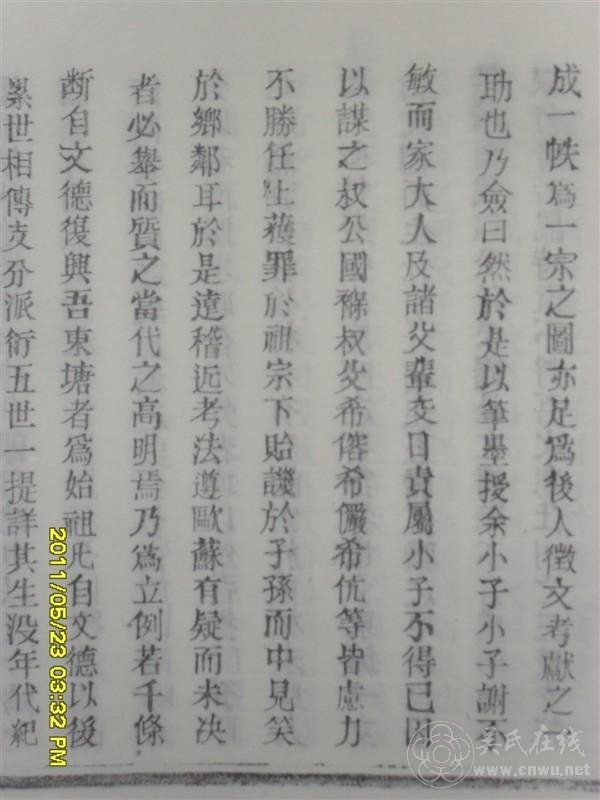 成一帙爲一宗之圖亦足爲後人徵文考獻之一
助也乃僉曰然於是以筆墨授余小子小子謝不
敏而家大人及諸父輩交日責屬小子不得已因
以謀之叔公國檺叔父希偧希儼希伉等皆慮力
不勝任上獲罪於祖宗下貽譏於子孫而中見笑
於鄉鄰耳於是遠稽近考法遵歐蘇有疑而未决
者必舉而質之當代之高明焉乃爲立例若干條
断自文德復興吾東塘者爲始祖凡自文德以後
累世相傳支分派衍五世一提詳其生没年代紀
2011/05/23 03:32 PM
吴氏在线
www.cnwu.net